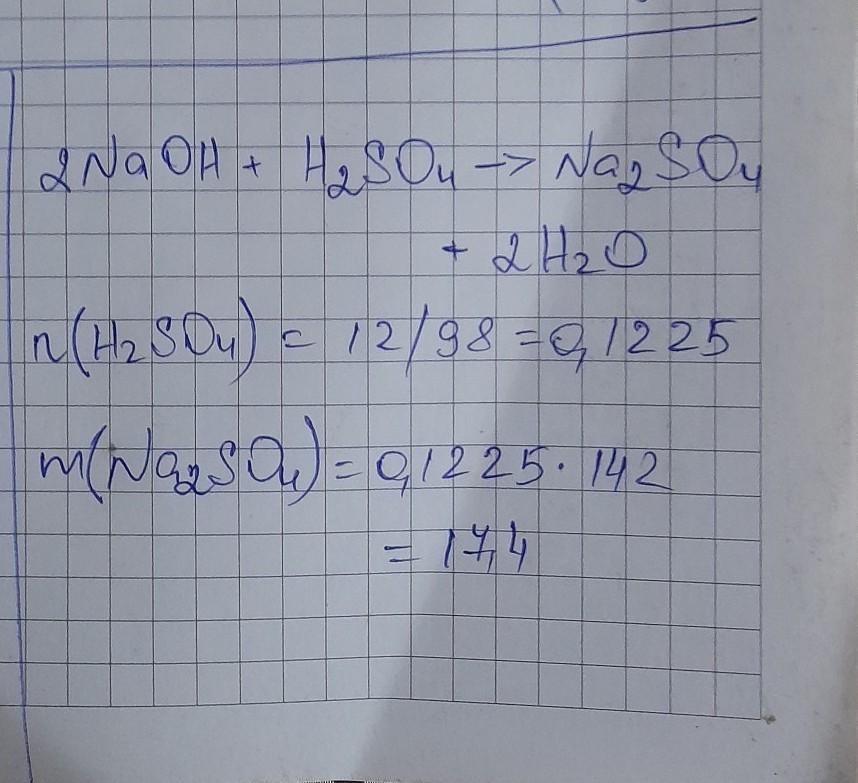 2NaOH + H₂SO₄ -> Na₂SO₄
+ 2H₂O
n(H₂SO₄) = 12/98 = 0,1225
m(Na₂SO₄) = 0,1225 · 142
= 17,4